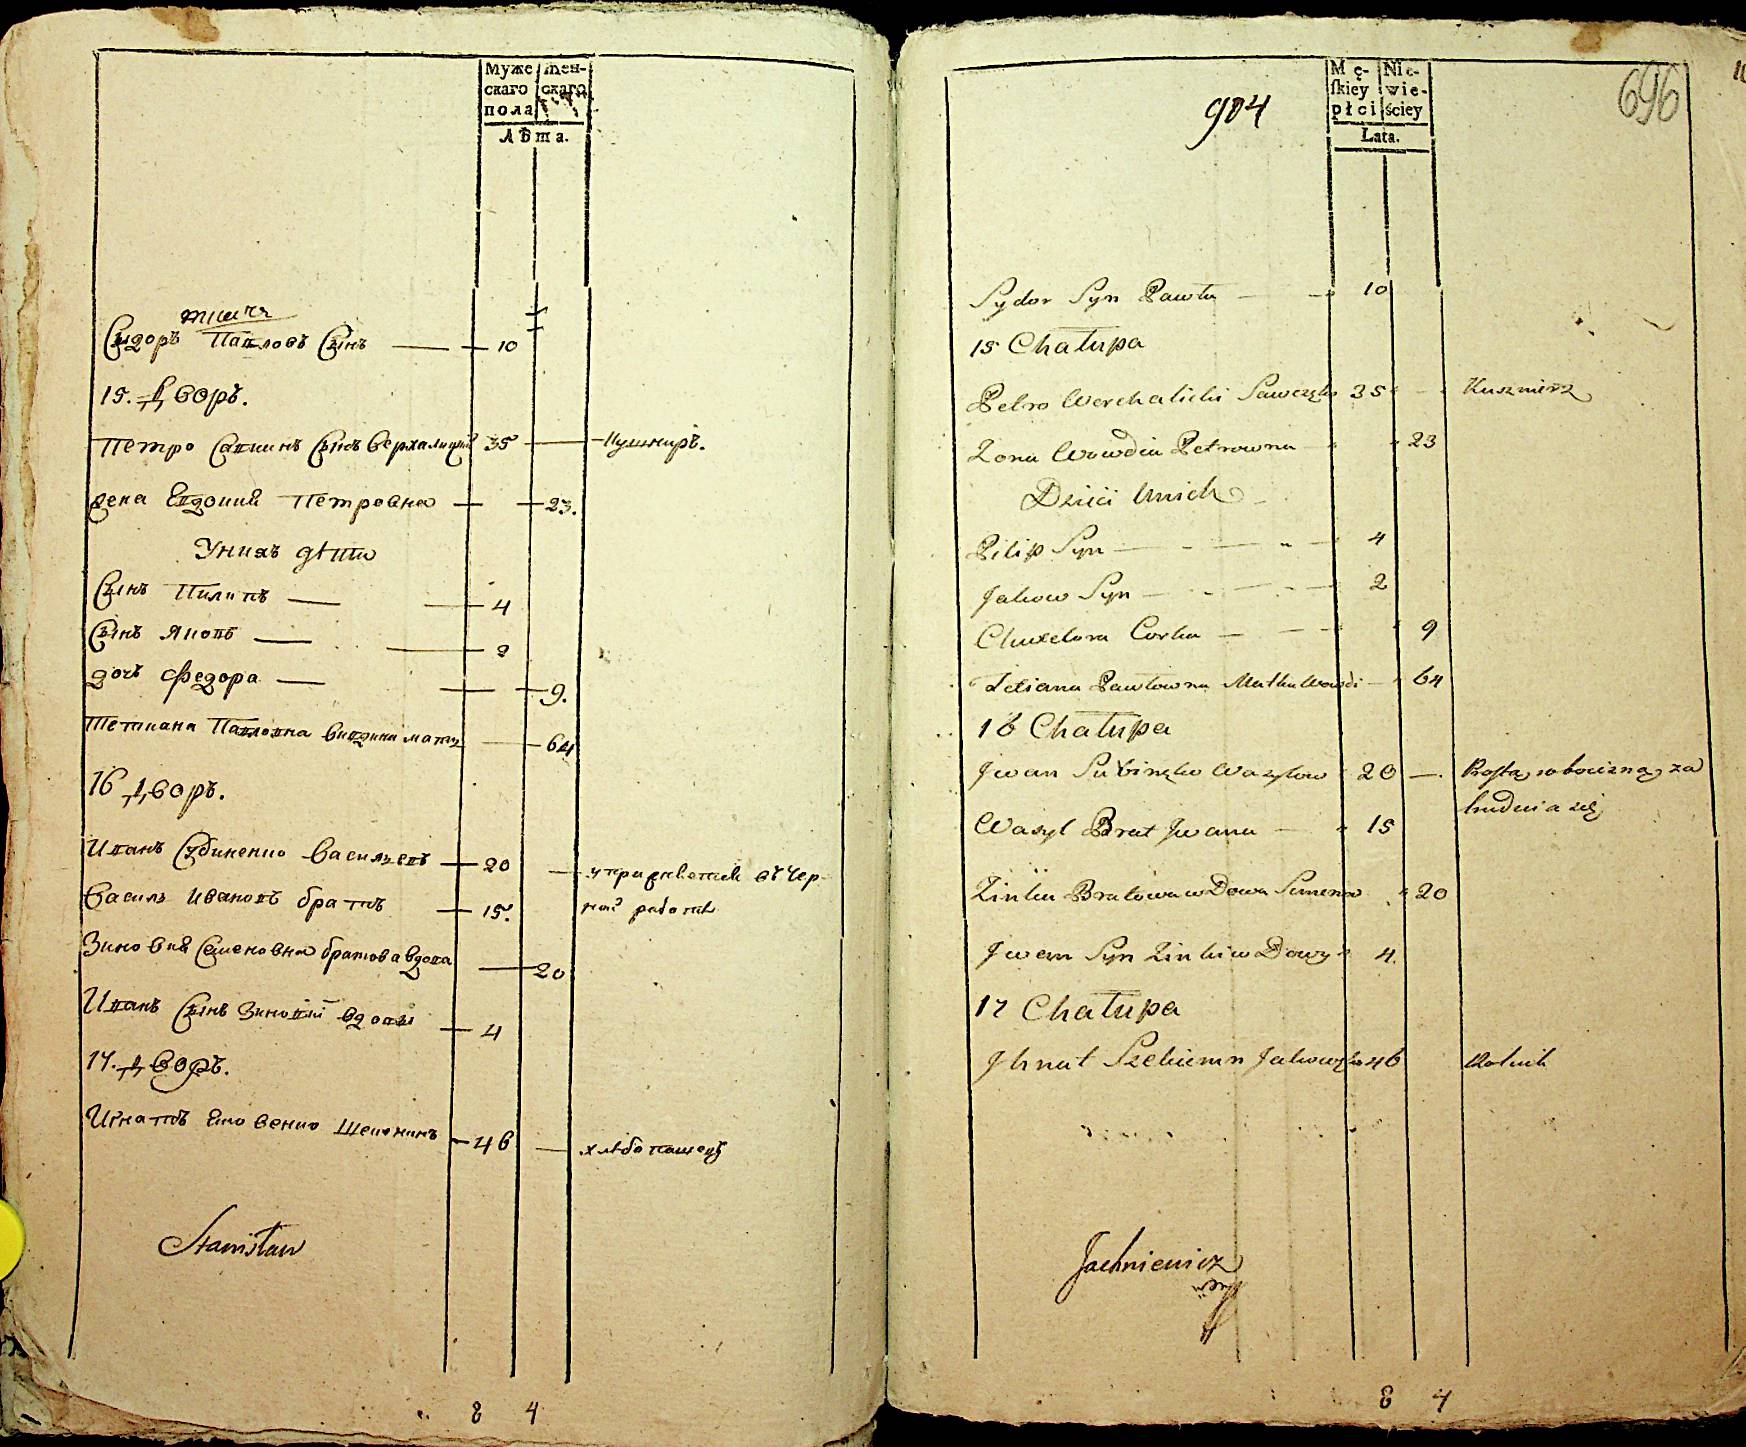 Муже
скаго
пола
Жен-
скаго
Лѣта.
Сидоръ Павловъ Сынъ 10
15. Дворъ.
Петро Савинъ Сынъ Верхалицкий 35 Кушниръ.
жена Евдокия Петровна 23.
Унихъ дѣти
Сынъ Пилипъ 4
Сынъ Яковъ 2
дочь Федора 9.
Тетиана Павловна мать 64
16 Дворъ.
Иванъ Василевъ 20 упражняется въ Чер-
Василь Ивановъ братъ 15. ной работѣ
Зиновия Семеновна братова вдова 20
Иванъ Сынъ Зиновии вдовы 4
17. Дворъ.
Игнатъ 46 хлѣбопашецъ
Stanisław
8 4
904
696
Mę-
skiey
płci
Nie-
wie-
ściey
Lata.
Sydor Syn Pawła 10
15 Chałupa
Petro Werchalicki Sawczęko 35 Kusznierz
Zona Wowdia Petrowna 23
Dzieci Unich
Pilip Syn 4
Jakow Syn 2
Chwedora Corka 9
Tetiana Pawłowna Matka Wowdi 64
16 Chałupa
Jwan Subinęko Wasylow 20 Prostą robocizną za
trudnia się
Wasyl Brat Jwana 15
Zinka Bratowa wDowa Semenow 20
Jwan Syn Zinki wDowy 4.
17 Chałupa
Jhnat Jakowęko 46 Rolnik
Jachniewicz
8 4